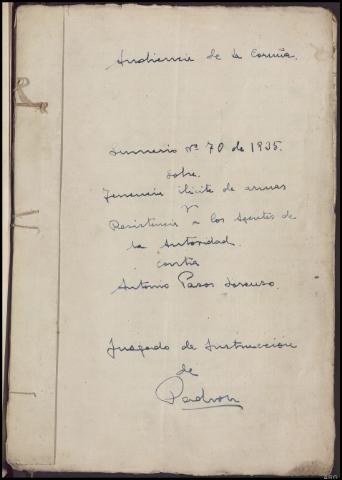 Audiencia de la Coruña.
Sumario Nº 70 de 1935.
sobre
Tenencia ilicita de armas
y
Resistencia a los Agentes de
la Autoridad.
contra
Antonio Pazos
Juzgado de Instrucción
de
Padron